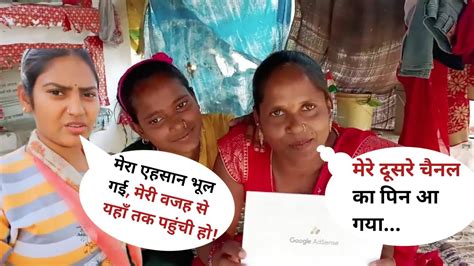 मेरा एहसान भूल
गई, मेरी वजह से
यहाँ तक पहुंची हो!
मेरे दूसरे चैनल
का पिन आ
गया...
Google AdSense